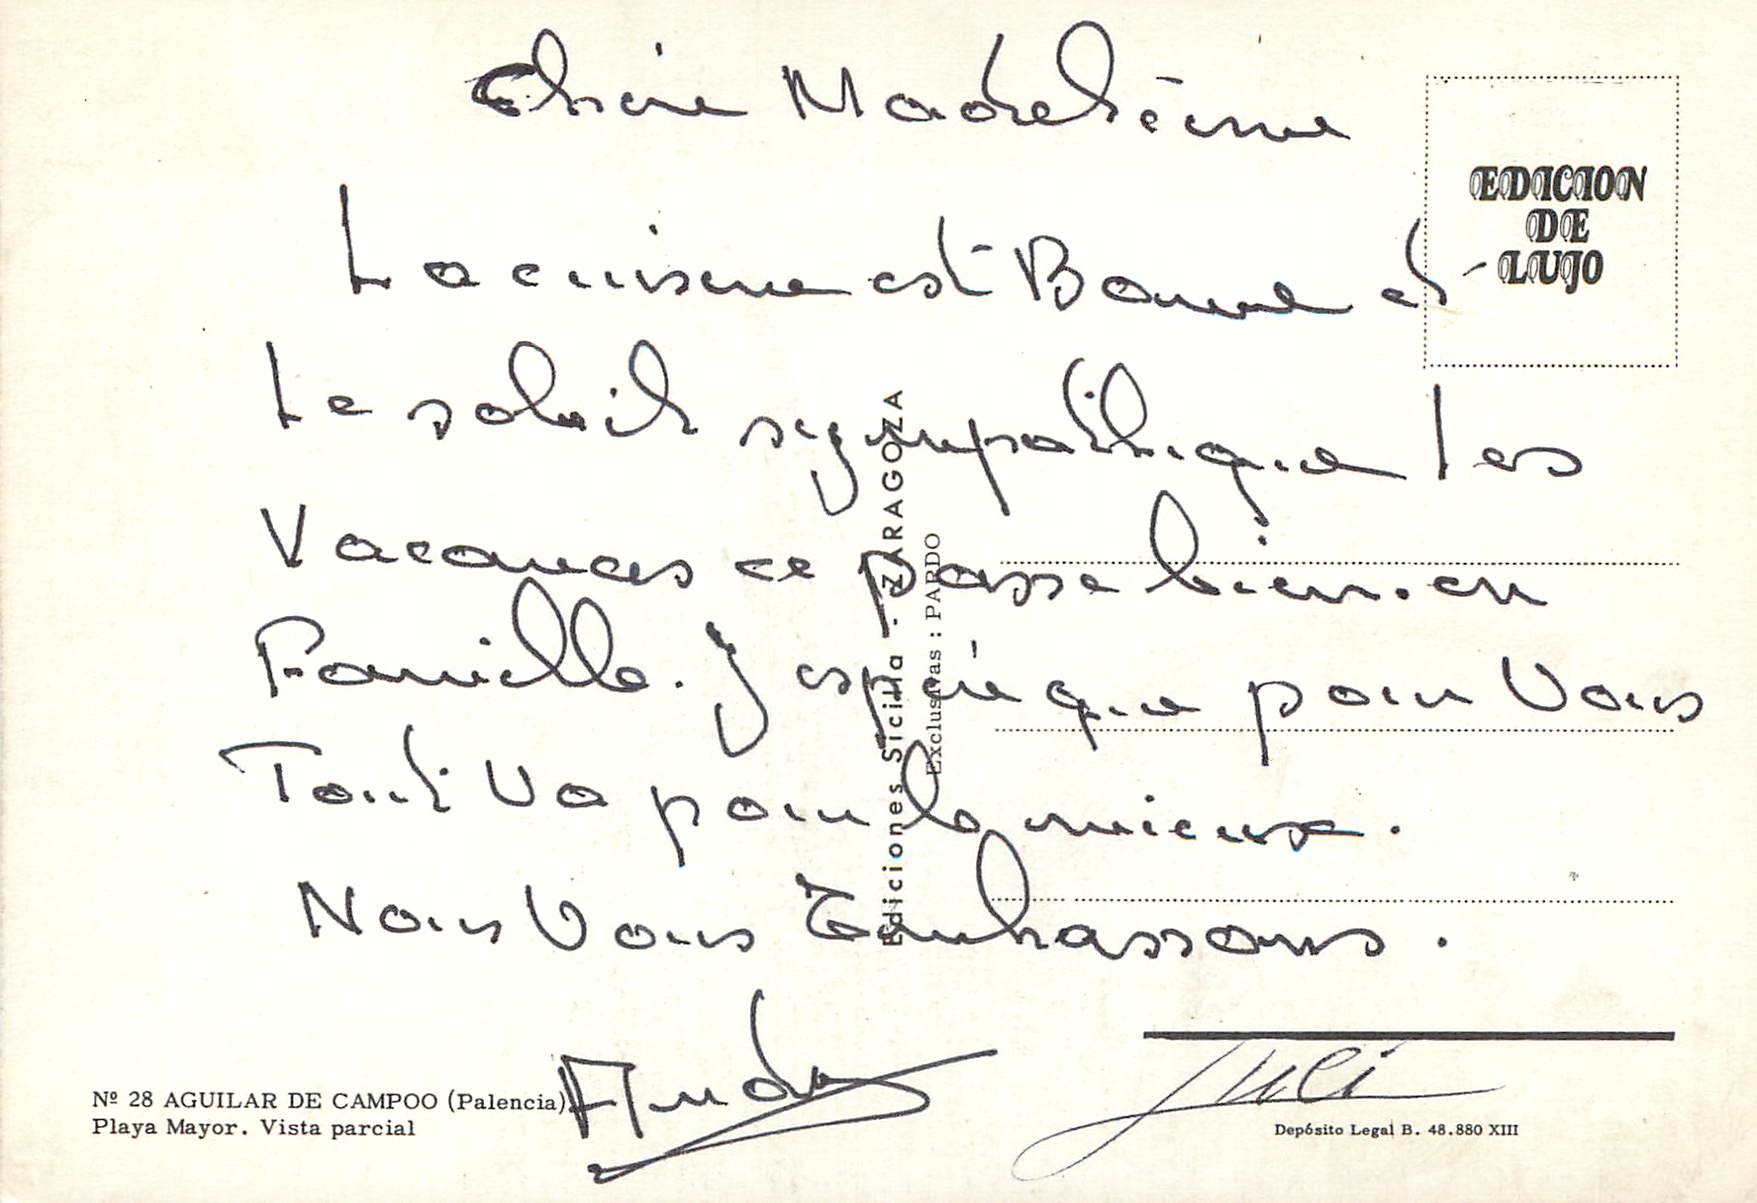 Chère Madeleine
La cuisine est Bonne et
Le soleil sympathique les
Vacances ce passe bien. en
Famille. J espère que pour Vous
Tout Va pour le mieux.
Nous Vous Embrassons.
Juli
EDICION
DE
LUJO
Ediciones Sicilia - ZARAGOZA
Exclusivas : PARDO
Nº 28 AGUILAR DE CAMPOO (Palencia)
Playa Mayor. Vista parcial
Depósito Legal B. 48.880 XIII